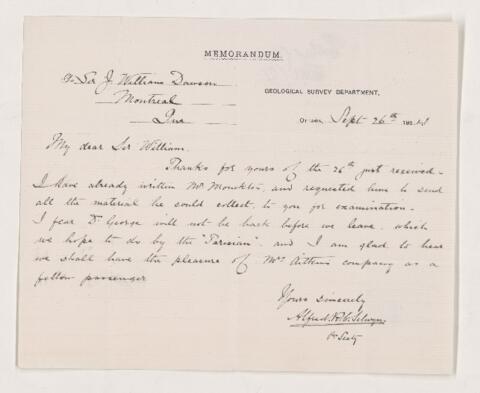 MEMORANDUM.
To Sir J. William Dawson
Montreal
Que
GEOLOGICAL SURVEY DEPARTMENT,
Ottawa, Sept 26th 188
My dear Sir William,
Thanks for yours of the 26th just received.
I have already written Mr and requested him to send
all the material he could collect, to you for examination.
I fear Dr George will not be back before we leave, which
we hope to do by the "Parisian" and I am glad to hear
we shall have the pleasure of company as a
fellow passenger
Yours sincerely
Alfred R. C. Selwyn